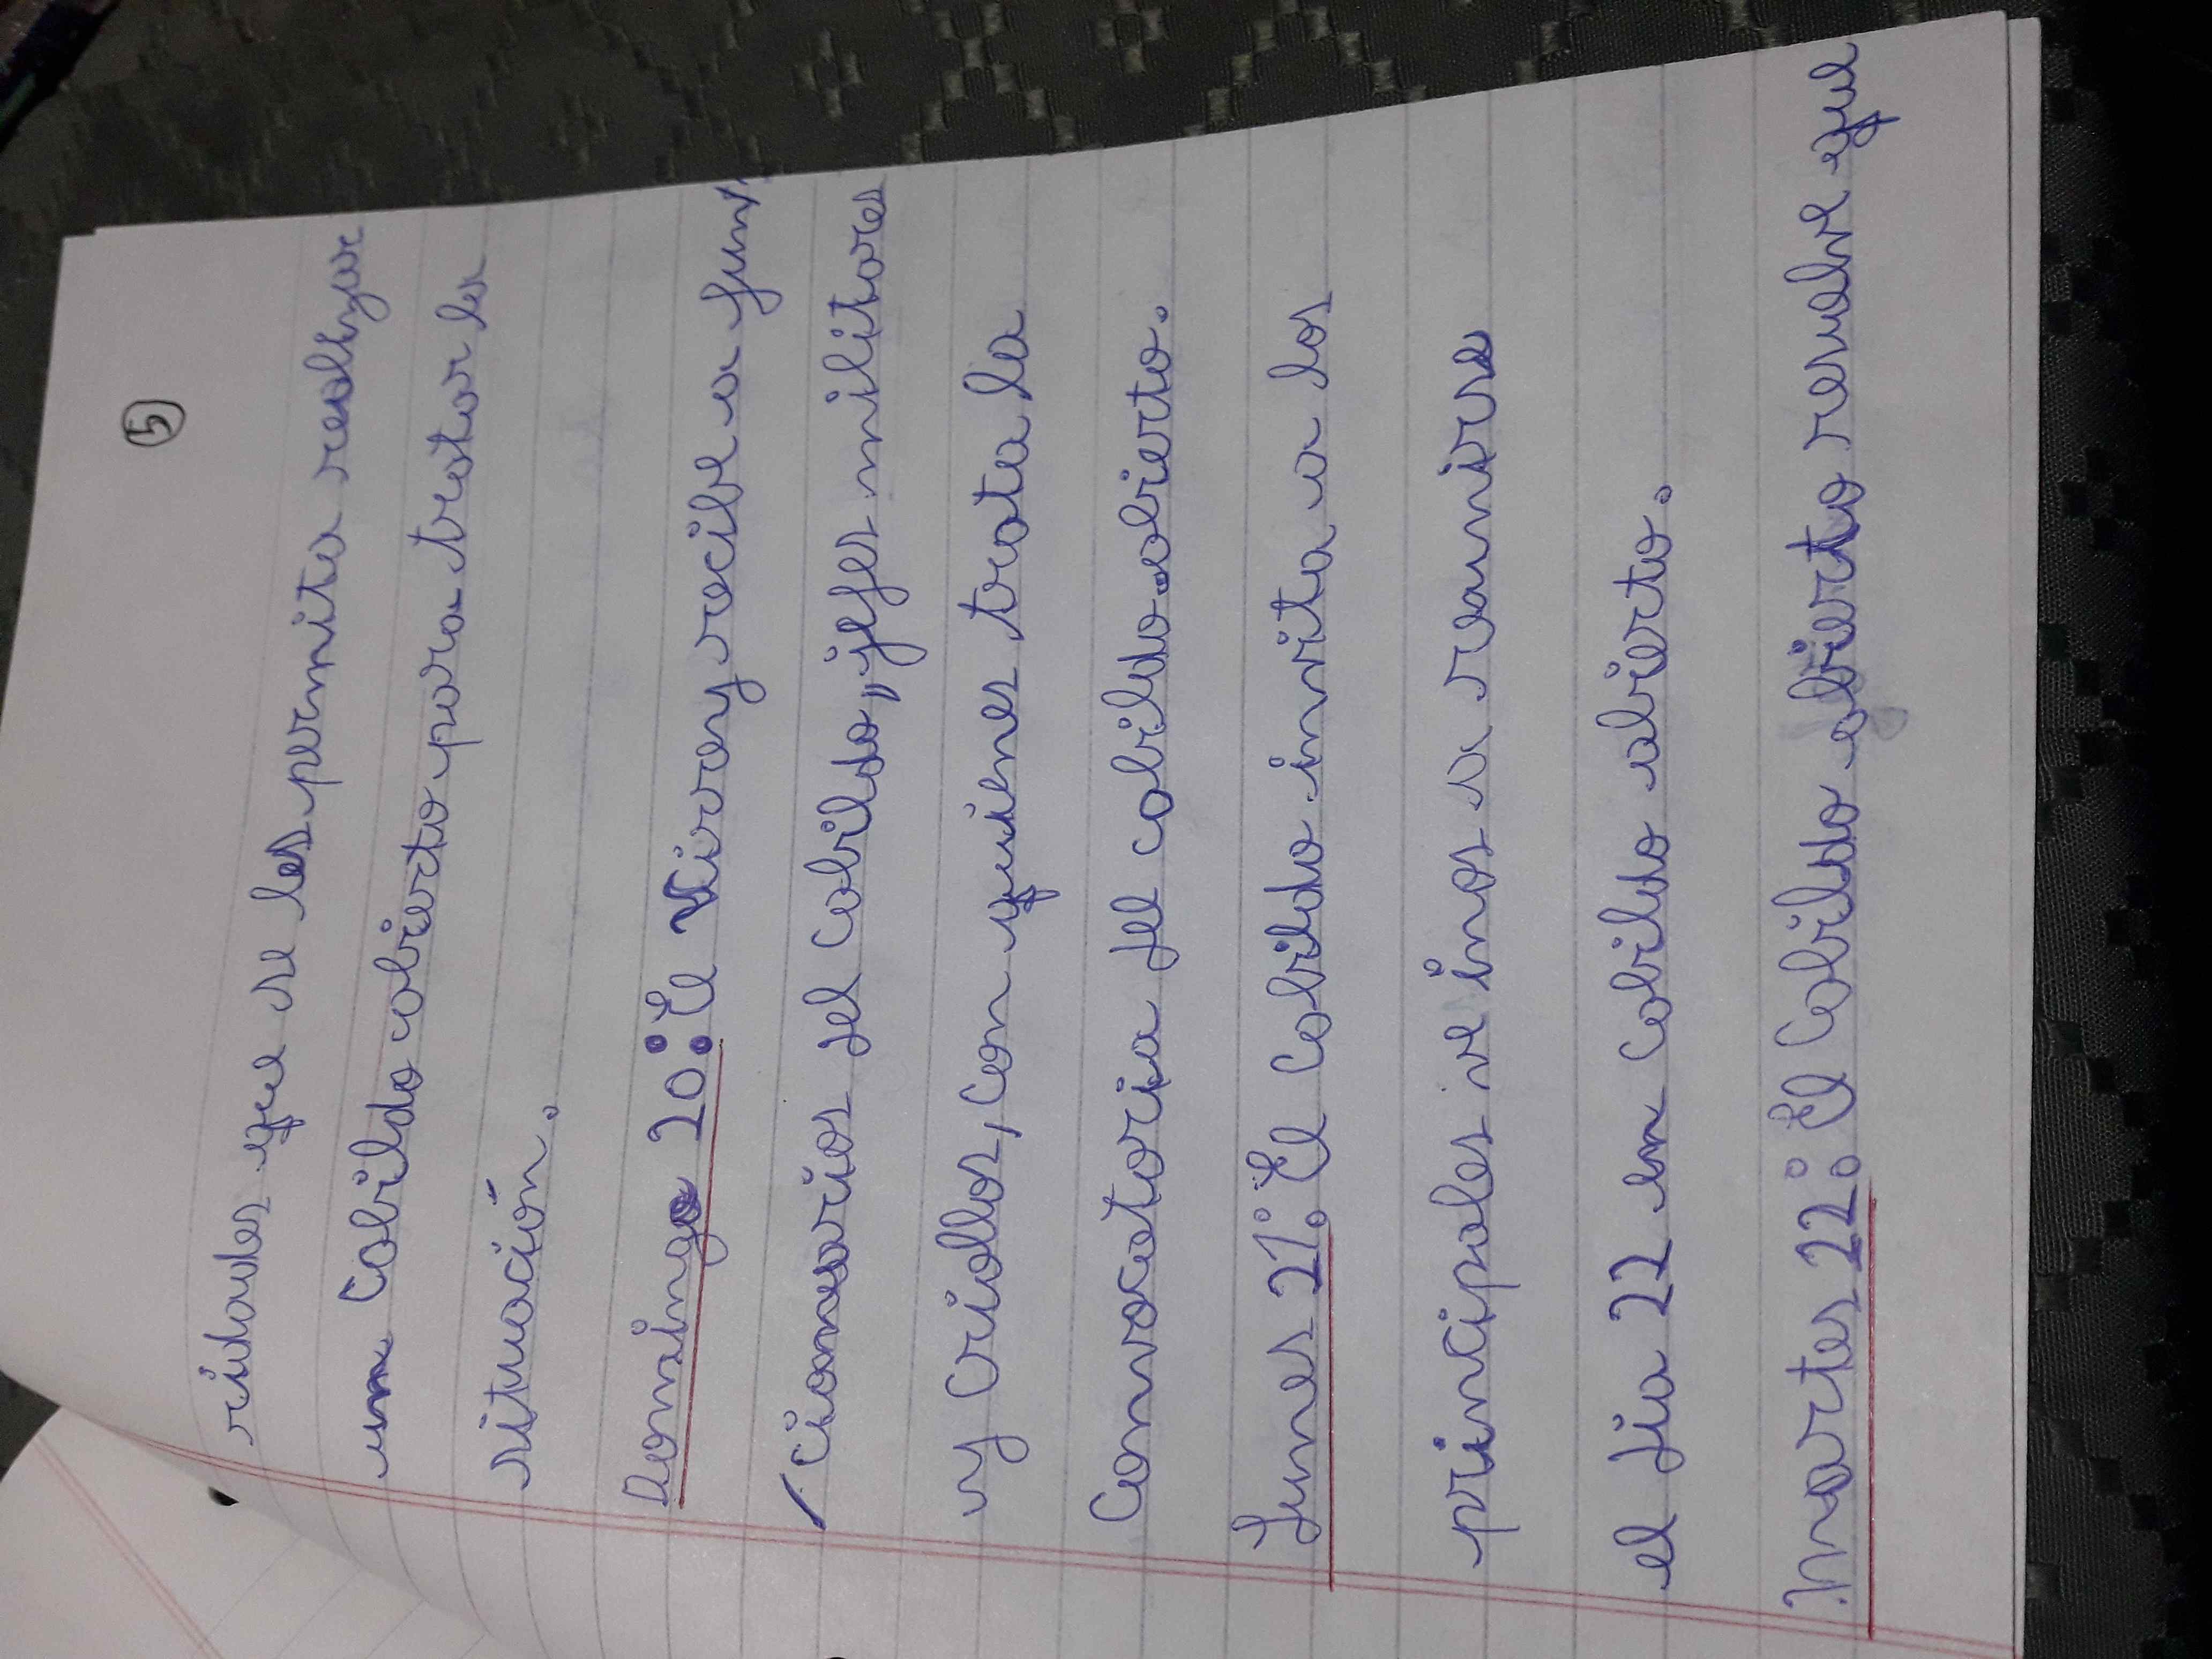 5
ridades que se les permita realizar
un Cabildo abierto para tratar la
situación.
Domingo 20: El Virrey recibe a fun
cionarios del Cabildo, jefes militares
y Criollos, con quienes trata la
Convocatoria del cabildo abierto.
Lunes 21: El Cabildo invita a los
principales ve inos a reunirse
el día 22 en Cabildo abierto.
Martes 22: El Cabildo abierto resuelve que